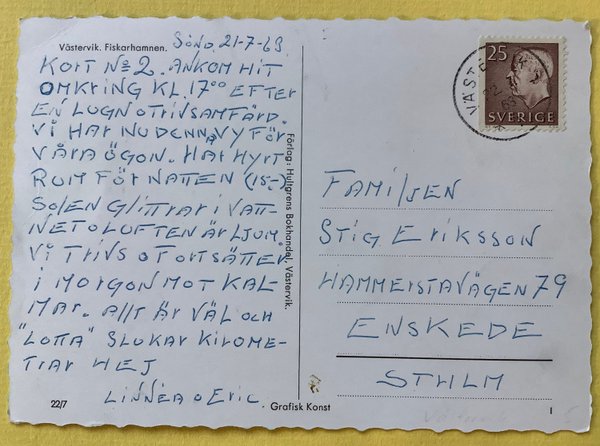 Västervik. Fiskarhamnen.
Sönd. 21-7-63
KORT No 2. ANKOM HIT
OMKRING KL. 17⁰⁰ EFTER
EN LUGN O TRIVSAM FÄRD.
VI HAR NU DENNA VY FÖR
VÅRA ÖGON. HAR HYRT
RUM FÖR NATTEN (15:-)
SOLEN GLITTRAR I VATT-
NET O LUFTEN ÄR LJUM.
VI TRIVS O FORTSÄTTER
I MORGON MOT KAL-
MAR. Allt ÄR VÄL OCH
"LOTTA" SLUKAR KILOME-
TRAR HEJ
LINNÉA O ERIC.
22/7
Förlag: Hultgrens Bokhandel, Västervik.
Grafisk Konst
25
SVERIGE
FAMILJEN
STIG ERIKSSON
HAMMERSTAVÄGEN 79
ENSKEDE
STHLM
I